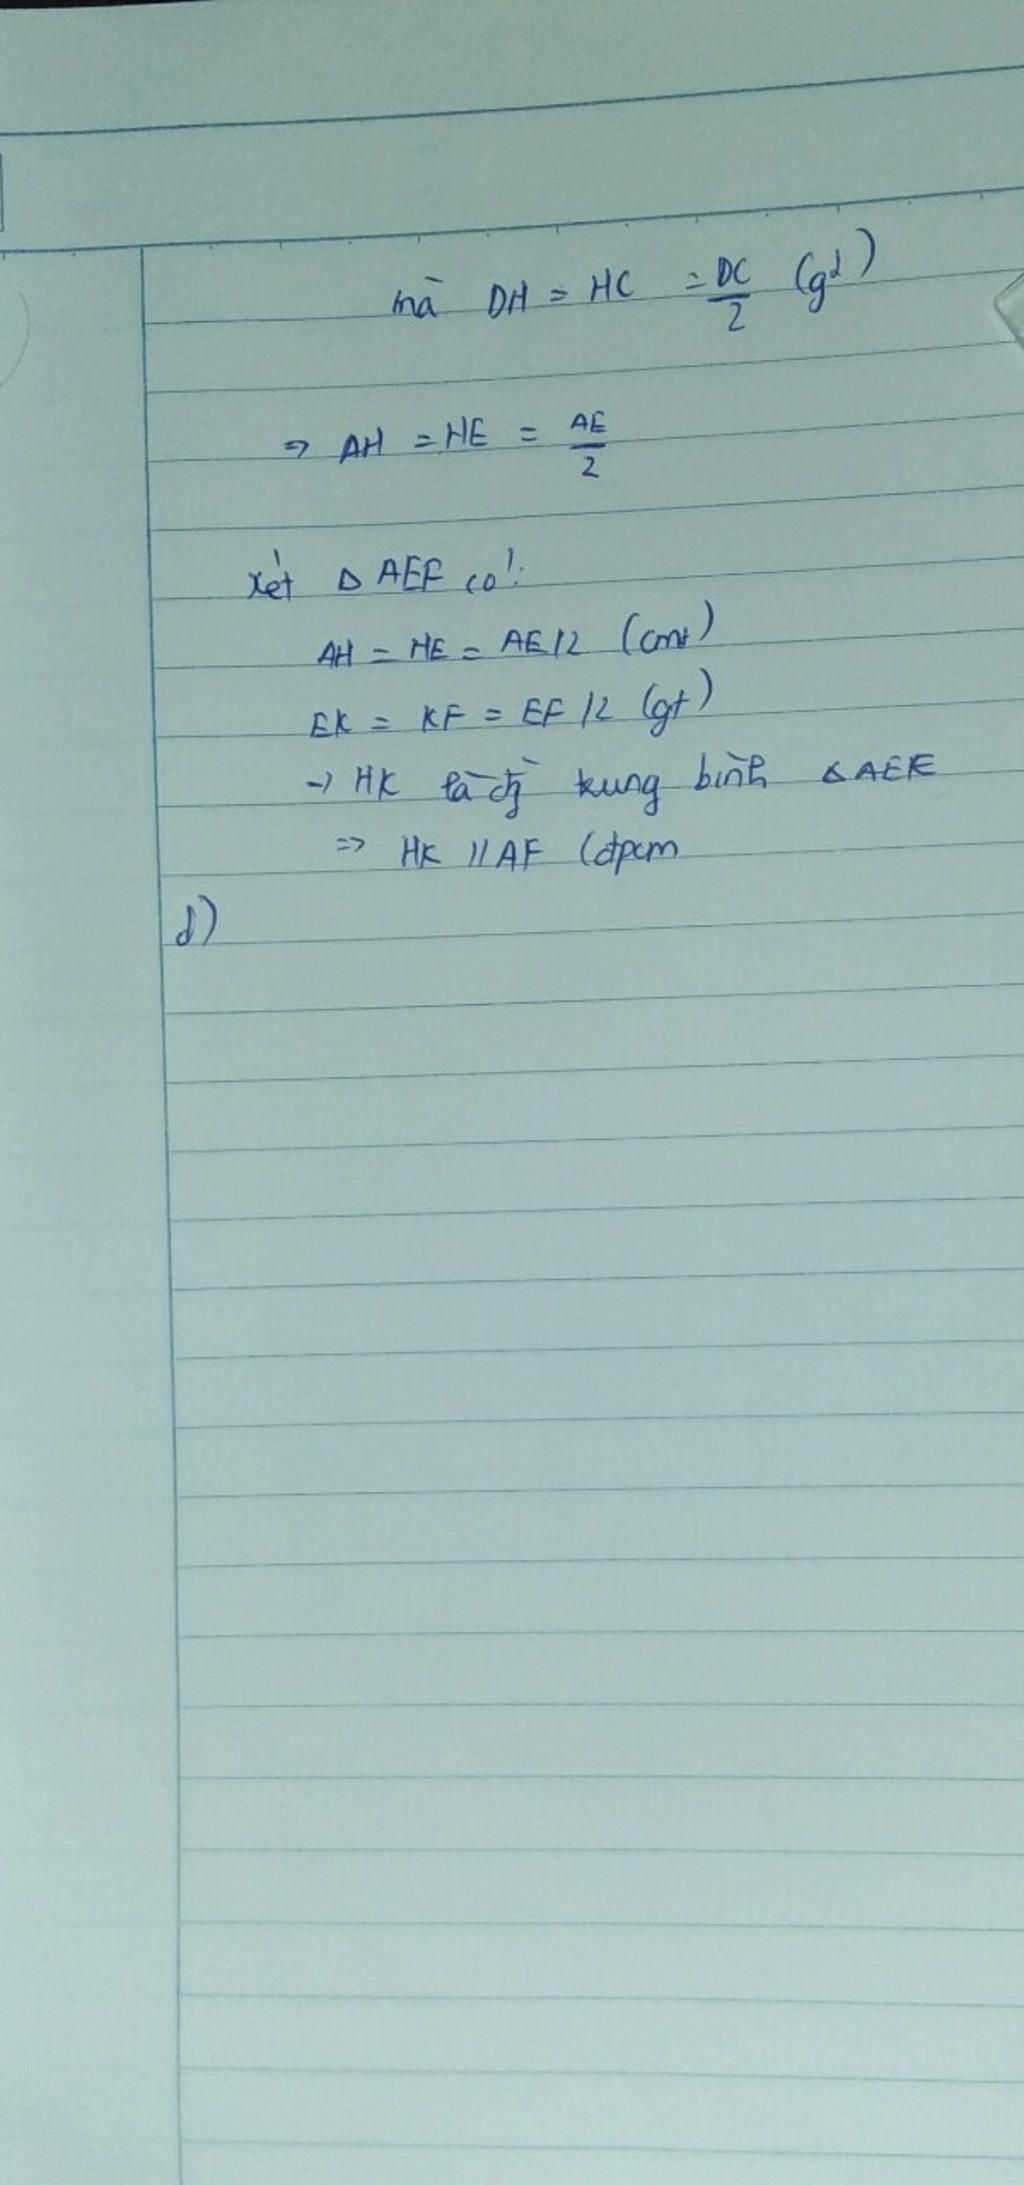 mà DH = HC = DC/2 (gt)
⇒ AH = HE = AE/2
xét Δ AEF có:
AH = HE = AE/2 (cmt)
EK = KF = EF/2 (gt)
→ HK là đg trung bình Δ AEF
=> HK // AF (đpcm
d)